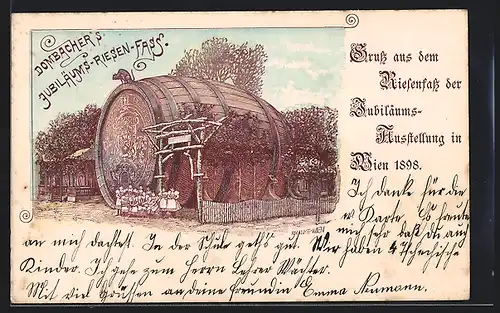 DOMBACHER'S
JUBILÄUMS-RIESEN-FASS.
Gruß aus dem
Riesenfaß der
Jubiläums-
Ausstellung in
Wien 1898.
Ich danke für die
Karte. Es freute
mich sehr daß Du auch
an mich dachtest. In der Schule geht's gut. Wir haben 4 Tschechische
Kinder. Ich gehe zum Herrn Lehrer Wächter.
Mit viel Grüssen an deine Freundin Emma Neumann.